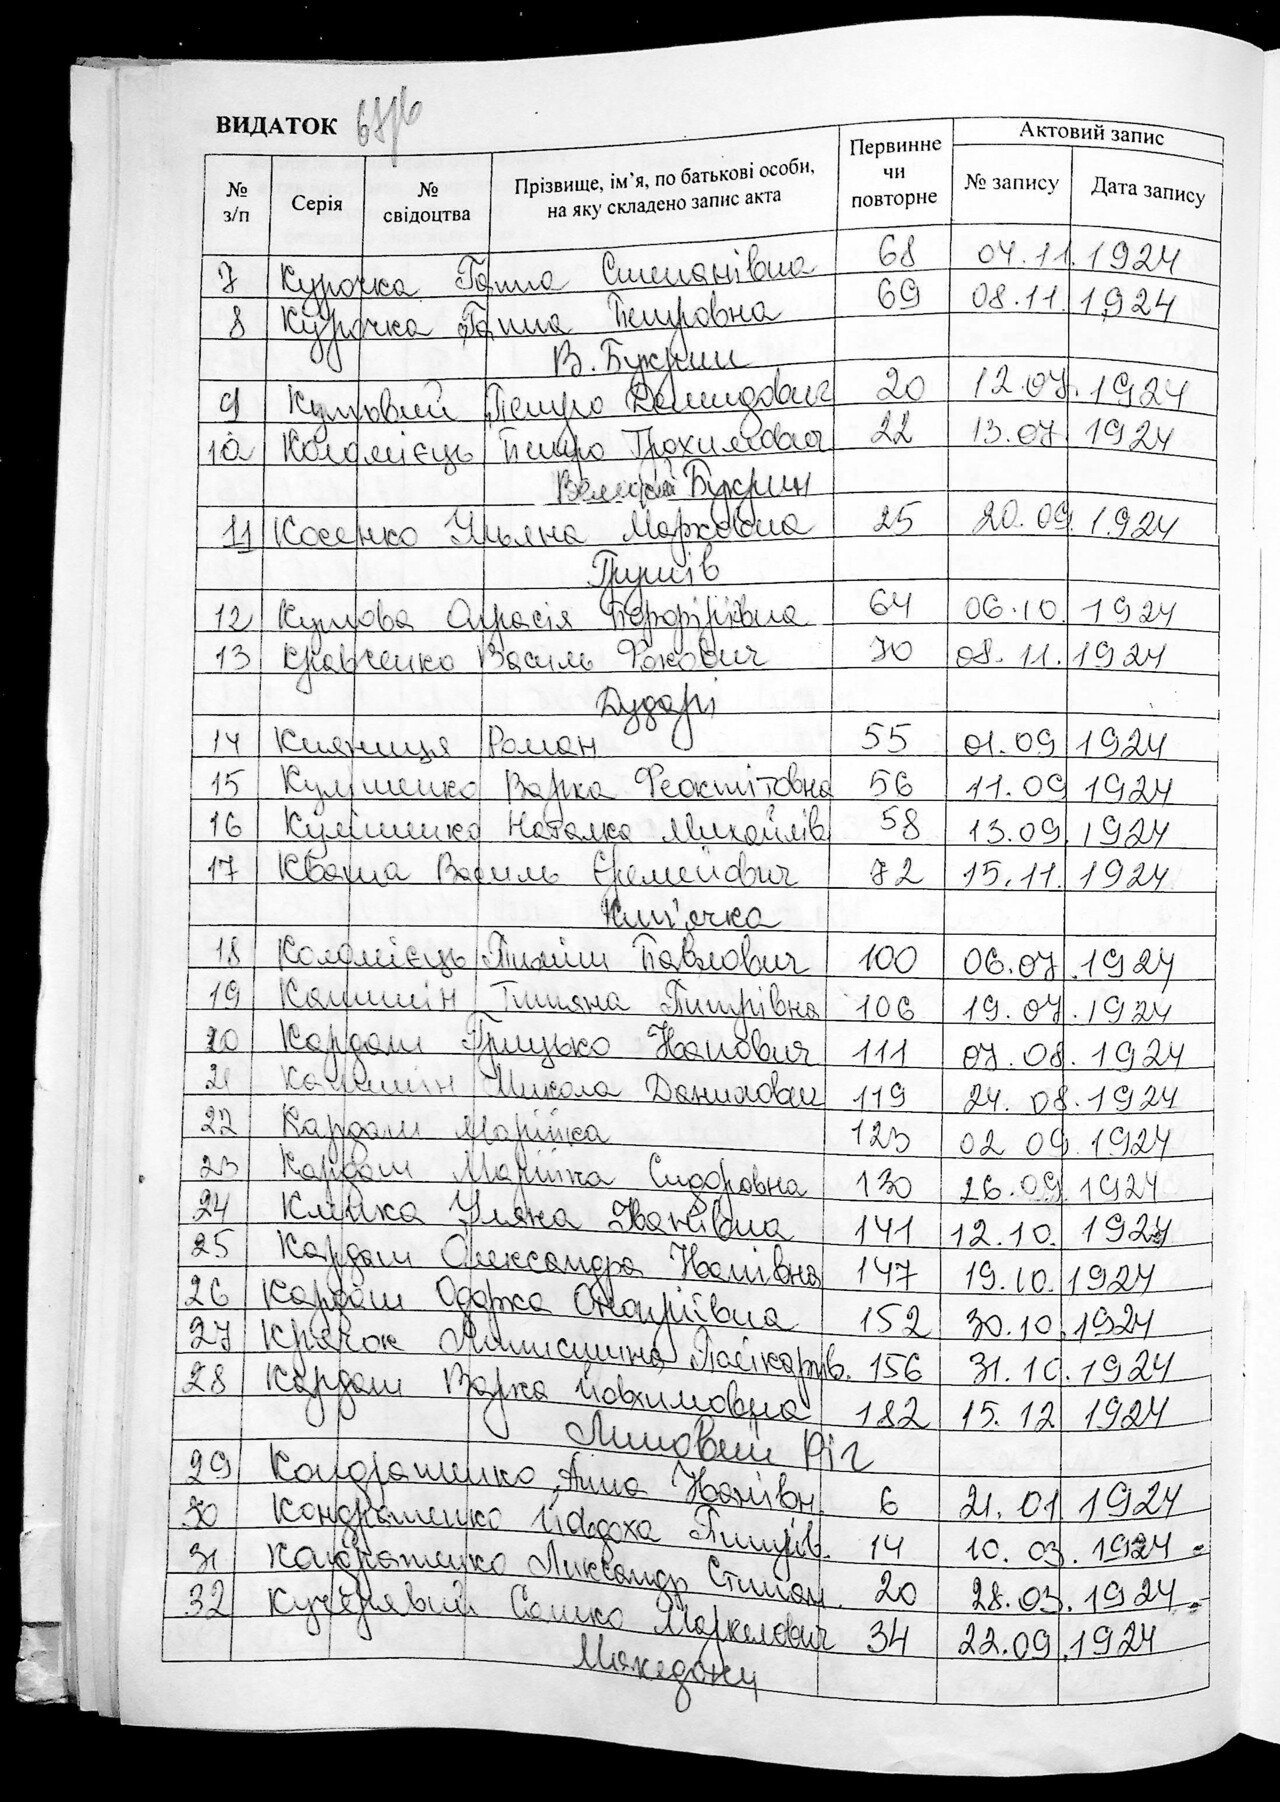 ВИДАТОК
№ з/п Серія № свідоцтва Прізвище, ім’я, по батькові особи, на яку складено запис акта Первинне чи повторне Актовий запис № запису Дата запису
7 Курочка Ганна Степанівна 68 07.11.1924
8 Курочка Ганна Петровна 69 08.11.1924
В. Букрин
9 Кутовий Петро Демидович 20 12.07.1924
10 Коломієць Петро Трохимович 22 13.07.1924
Великий Букрин
11 Косенко Ульяна Марковна 25 20.09.1924
Грушів
12 Кутова Порфіріївна 64 06.10 1924
13 Кравченко Василь Фокович 70 08.11.1924
Дударі
14 Кияниця Роман 55 01.09 1924
15 Варка Феоктітовна 56 11.09 1924
16 Наталка Михайлів 58 13.09.1924
17 Кваша Василь Єремейович 72 15.11.1924
18 Коломієць Пиліп Павлович 100 06.07.1924
19 Титяна Питрівна 106 19.07.1924
20 Кардаш Грицько Иванович 111 07.08.1924
21 Микола Данилович 119 24.08.1924
22 Кардаш Марійка 123 02 09.1924
23 Кардаш Марійка Сидоровна 130 26.09.1924
24 Уляна Іванівна 141 12.10.1924
25 Кардаш Олександра Иванівна 147 19.10.1924
26 Кардаш Одарка Онопріівна 152 30.10.1924
27 156 31.10.1924
28 Кардаш Варка Йовхимовна 182 15.12 1924
Липовий Ріг
29 Кондратенко Анна Иванівн. 6 21.01 1924
30 Кондратенко Йовдоха Питрів. 14 10.03.1924
31 Кондратенко Ликсандр Стипан. 20 28.03.1924
32 Кучерявий Сашко Маркелович 34 22.09.1924
Македони